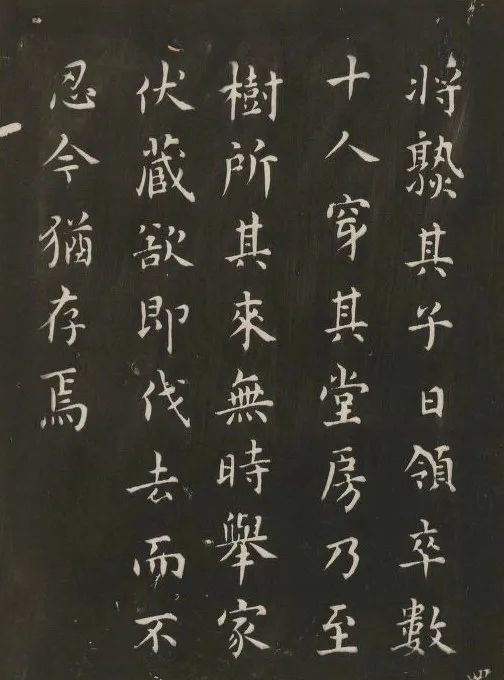 將熟其子日領卒數
十人穿其堂房乃至
樹所其來無時舉家
伏藏欲即伐去而不
忍今猶存焉